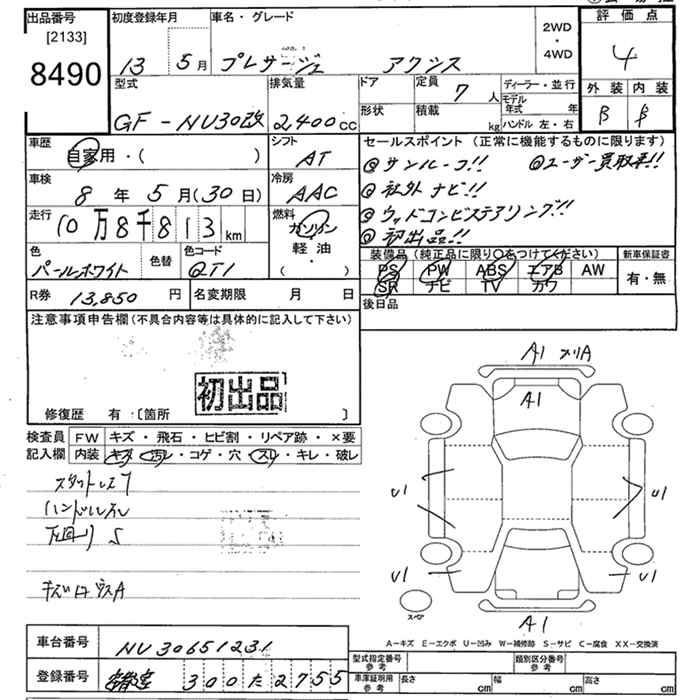 出品番号 初度登録年月 車名・グレード 2WD・4WD 評価点
[2133] 8490
13 5月 プレサージュ アクシス 4
型式 排気量 ドア 定員 7人 ディーラー・並行 外装 内装
GF-NU30改 2400cc 形状 積載 kg モデル年式 年 ハンドル 左・右 B B
車歴 自家用・( ) シフト AT
セールスポイント(正常に機能するものに限ります)
◎サンルーフ!! ◎ユーザー買取車!!
車検 8年5月(30日) 冷房 AAC
◎社外ナビ!!
走行 10万8千813km 燃料 ガソリン 軽油 ( )
◎ウッドコンビステアリング!!
◎初出品!!
色 パールホワイト 色替 色コード QT1
装備品(純正品に限り○をつけてください) 新車保証書
PS PW ABS エアB AW 有・無
SR ナビ TV カワ
R券 13,850円 名変期限 月 日
後日品
注意事項申告欄(不具合内容等は具体的に記入して下さい)
初出品
修復歴 有:[箇所 ]
検査員記入欄 FW キズ・飛石・ヒビ割・リペア跡・×要
内装 キズ・汚レ・コゲ・穴・スレ・キレ・破レ
スタットレス7
ハンドルスレ
A1 スリA
A1
U1 U1
U1 U1
スペア
A1
A-キズ E-エクボ U-凹み W-補修跡 S-サビ C-腐食 XX-交換済
車台番号 NU30651231
型式指定番号参考 類別区分番号参考
登録番号 300た2755
車庫証明用参考 長さ cm 幅 cm 高さ cm